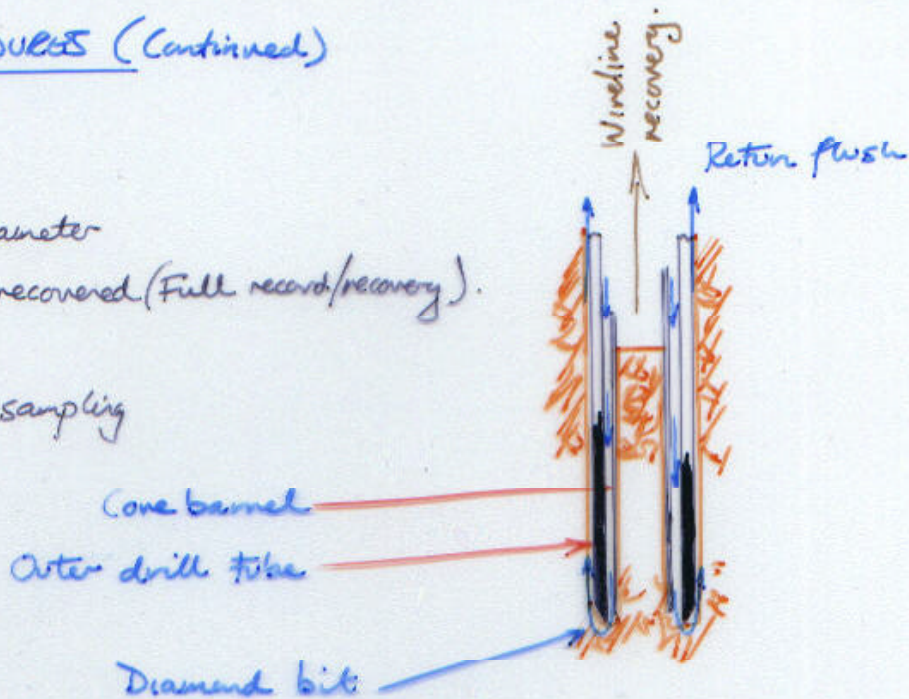 DURES (Continued)
Wireline
recovery.
Return flush
ameter
recovered (Full record/recovery).
sampling
Core barrel
Outer drill tube
Diamond bit